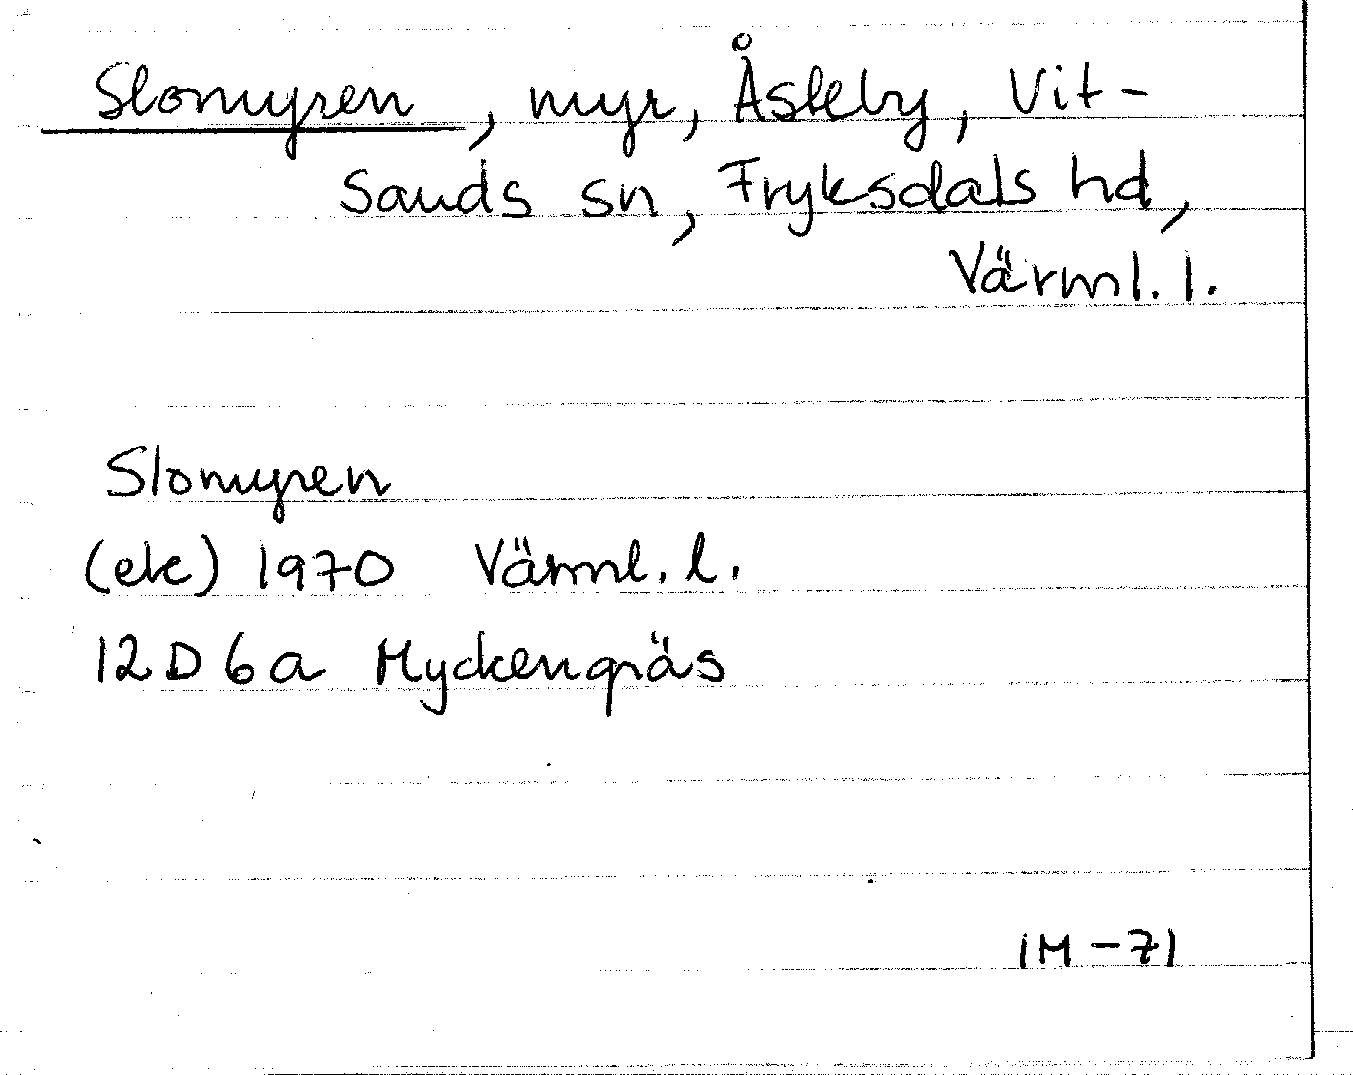 Slomyren, myr, Åsteby, Vit-
sands sn, Fryksdals hd,
Värml. l.
Slomyren
(ek) 1970 Värml. l.
12D 6a Myckengräs
IM-71